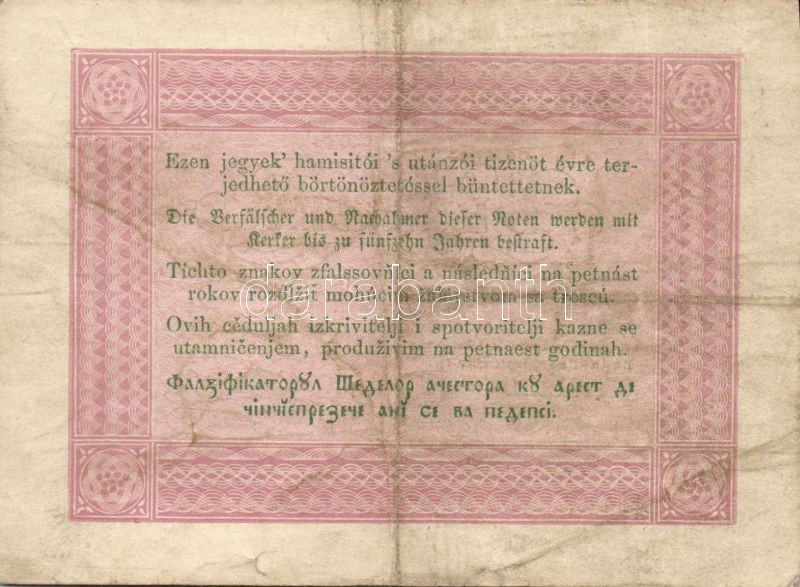 Ezen jegyek’ hamisitói ’s utánzói tizenöt évre ter-
jedhető börtönöztetéssel büntettetnek.
Die Verfälscher und Nachahmer dieser Noten werden mit
Kerker bis zu fünfzehn Jahren bestraft.
Tíchto znakov zfalssovňíci a násleďňíci na petnást
rokov rozďlžiť mohúcim
Ovih cěduljah izkrivitelji i spotvoritelji kazne se
utamničenjem, produživim na petnaest godinah.
Фалꙁіфікаторȣл Шеделор ачестора кȣ арест де
чінчіспрезече анĭ се ва педепсі.
darabanth